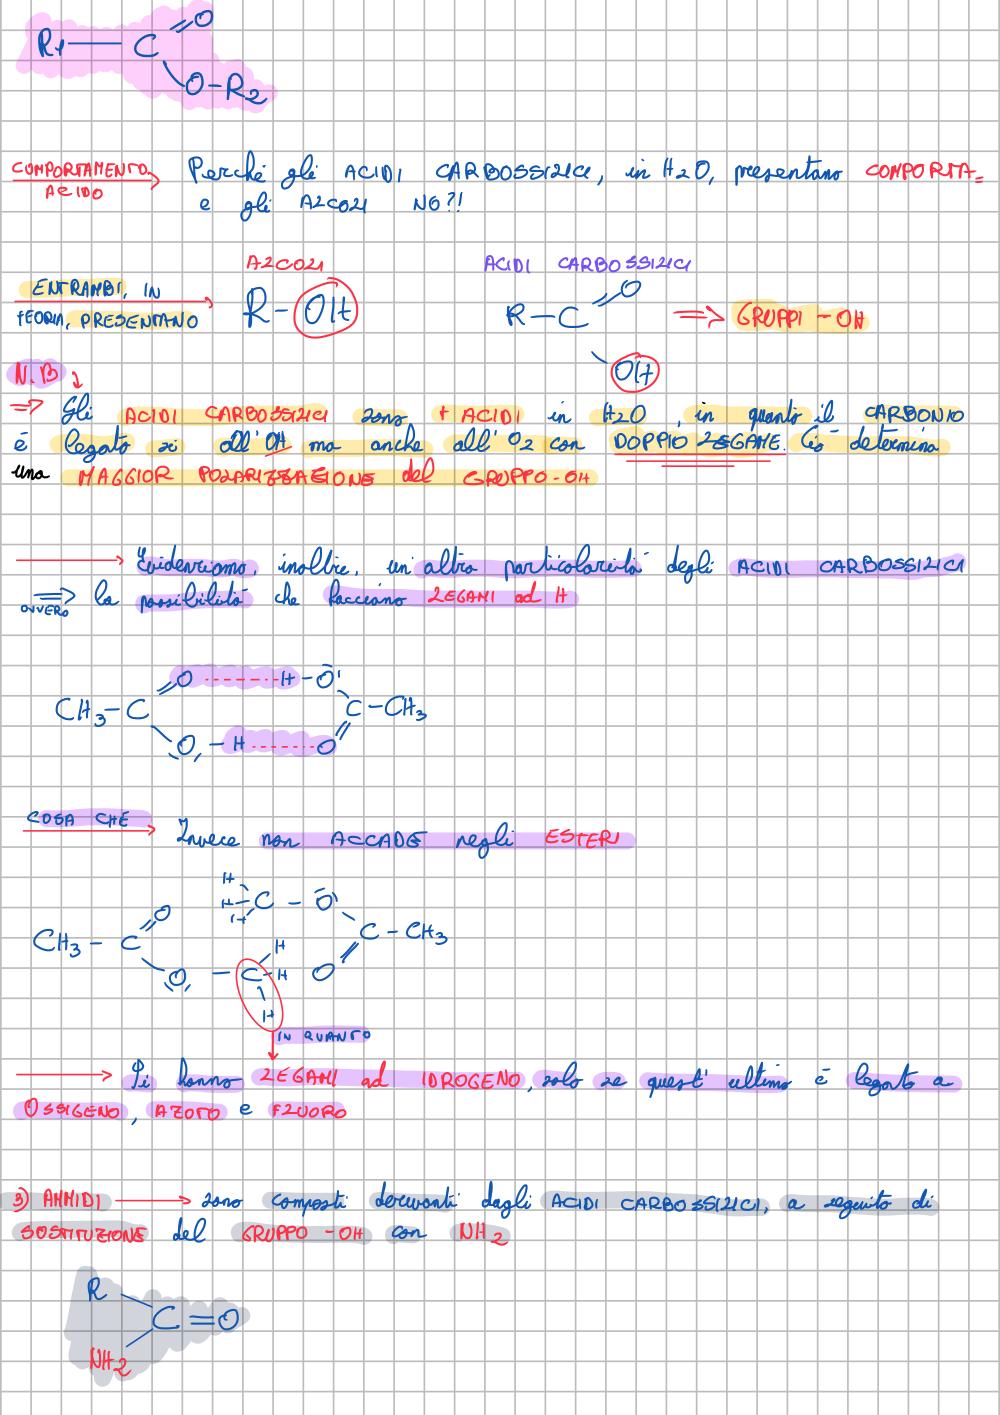 R1 — C =O
O-R2
COMPORTAMENTO ACIDO → Perché gli ACIDI CARBOSSILICI, in H2O, presentano COMPORTA=
e gli ALCOLI NO?!
ALCOLI ACIDI CARBOSSILICI
ENTRAMBI, IN TEORIA, PRESENTANO → R-OH R-C =O OH ⇒ GRUPPI -OH
N.B
⇒ Gli ACIDI CARBOSSILICI sono + ACIDI in H2O, in quanto il CARBONIO
è legato sì all'OH ma anche all'O2 con DOPPIO LEGAME. Ciò determina
una MAGGIOR POLARIZZAZIONE del GRUPPO-OH
→ Evidenziamo, inoltre, un'altra particolarità degli ACIDI CARBOSSILICI
⇒ OVVERO la possibilità che facciano LEGAMI ad H
O ------ H-O
CH3-C C-CH3
O - H ------ O
COSA CHE → Invece non ACCADE negli ESTERI
H
H-C - O
H
O
CH3 - C C - CH3
H
O - C-H O
H
IN QUANTO
→ Si hanno LEGAMI ad IDROGENO, solo se quest'ultimo è legato a
OSSIGENO, AZOTO e FLUORO
3) AMMIDI → sono composti derivanti dagli ACIDI CARBOSSILICI, a seguito di
SOSTITUZIONE del GRUPPO -OH con NH2
R
C=O
NH2